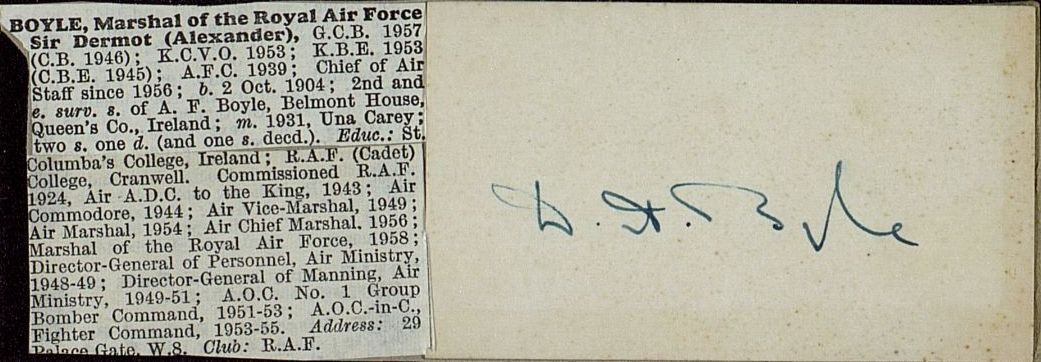 BOYLE, Marshal of the Royal Air Force
Sir Dermot (Alexander), G.C.B. 1957
(C.B. 1946); K.C.V.O. 1953; K.B.E. 1953
(C.B.E. 1945); A.F.C. 1939; Chief of Air
Staff since 1956; b. 2 Oct. 1904; 2nd and
e. surv. s. of A. F. Boyle, Belmont House,
Queen's Co., Ireland; m. 1931, Una Carey;
two s. one d. (and one s. decd.). Educ.: St.
Columba's College, Ireland; R.A.F. (Cadet)
College, Cranwell. Commissioned R.A.F.
1924, Air A.D.C. to the King, 1943; Air
Commodore, 1944; Air Vice-Marshal, 1949;
Air Marshal, 1954; Air Chief Marshal. 1956;
Marshal of the Royal Air Force, 1958;
Director-General of Personnel, Air Ministry,
1948-49; Director-General of Manning, Air
Ministry, 1949-51; A.O.C. No. 1 Group
Bomber Command, 1951-53; A.O.C.-in-C.,
Fighter Command, 1953-55. Address: 29
Palace Gate, W.8. Club: R.A.F.
D. A. Boyle